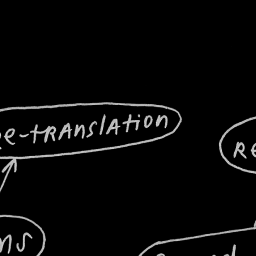 e-tRANslATION
RE
ns